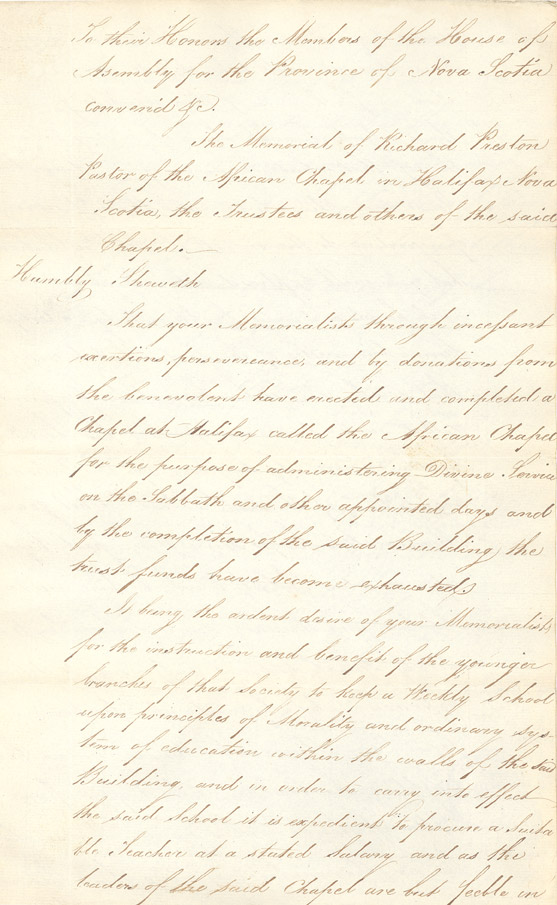 To their Honors the Members of the House of
Assembly for the Province of Nova Scotia
convened &c.
The Memorial of Richard Preston
Pastor of the African Chapel in Halifax Nova
Scotia, the Trustees and others of the said
Chapel.
Humbly Sheweth
That your Memorialists through incessant
exertions, perseverance, and by donations from
the benevolent have erected and completed a
Chapel at Halifax called the African Chapel
for the purpose of administering Divine Service
on the Sabbath and other appointed days and
by the completion of the said Building the
trust funds have become exhausted,
It being the ardent desire of your Memorialists
for the instruction and benefit of the younger
branches of that Society to keep a Weekly School
upon principles of Morality and ordinary sys-
tem of education within the walls of the said
Building, and in order to carry into effect
the said School it is expedient to procure a Suita
ble Teacher at a stated Salary and as the
leaders of the said Chapel are but feeble in